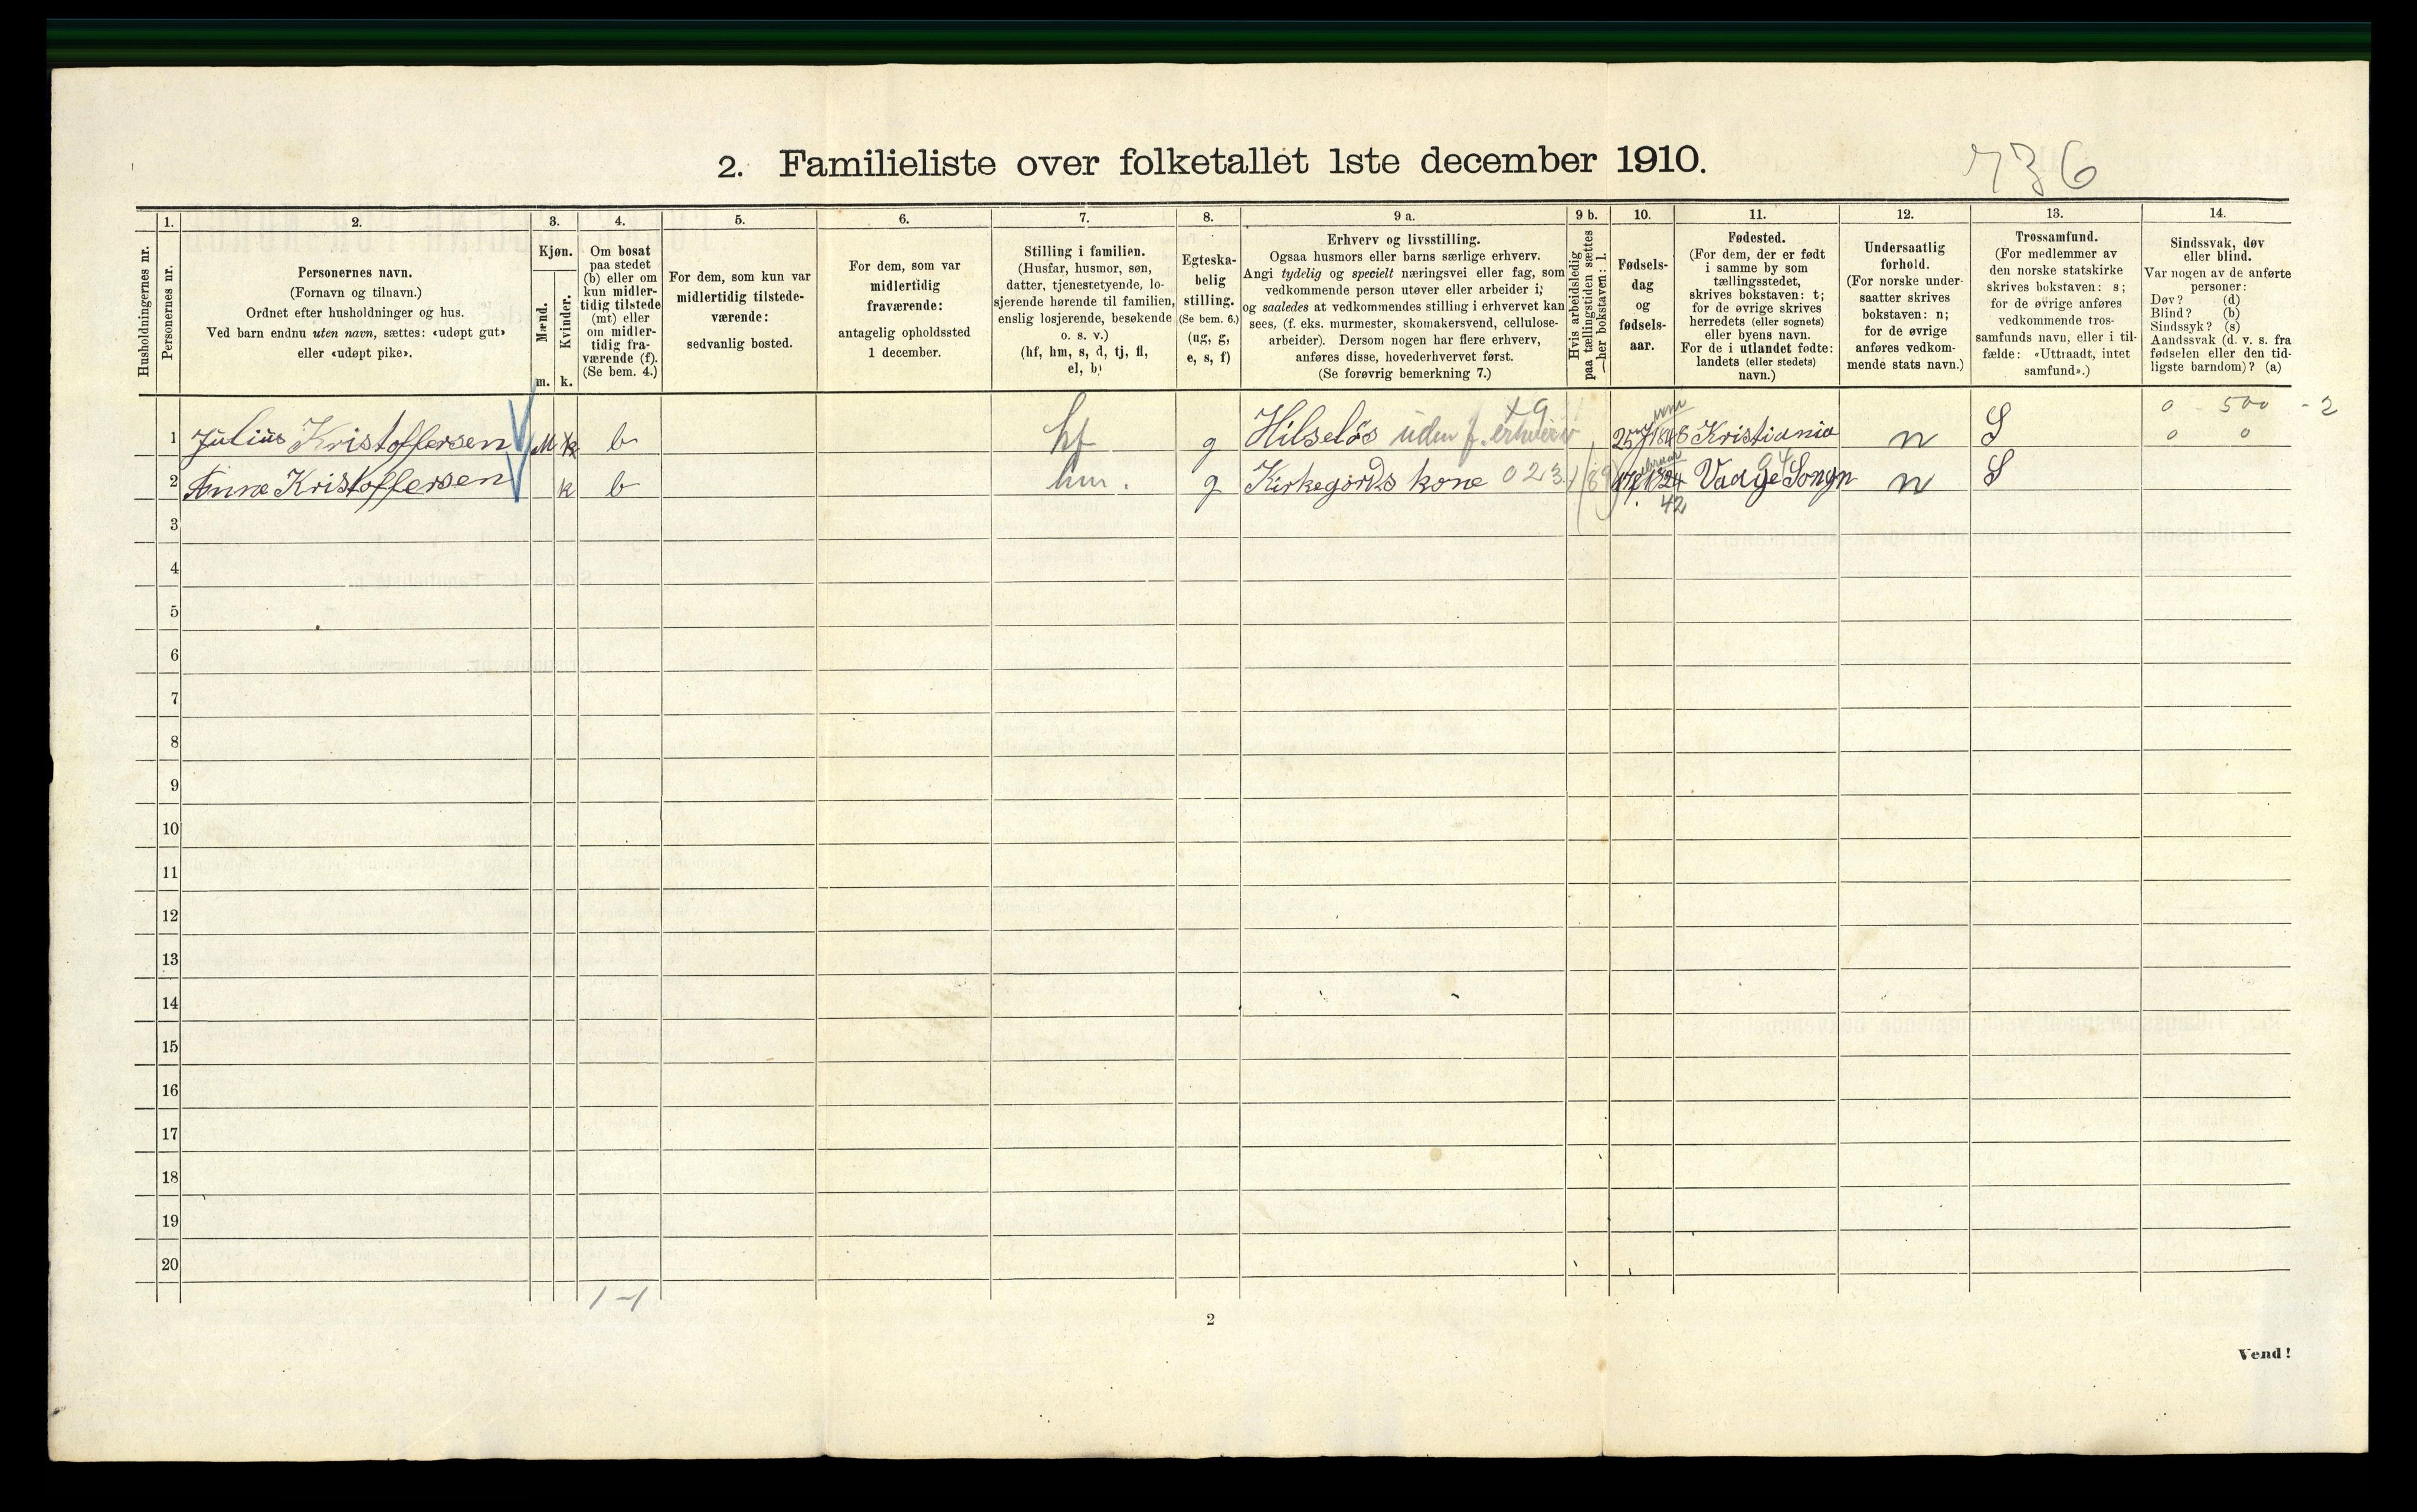 2. Familieliste over folketallet 1ste december 1910.
736
Husholdningernes nr.
1.
Personernes nr.
2.
Personernes navn.
(Fornavn og tilnavn.)
Ordnet efter husholdninger og hus.
Ved barn endnu uten navn, sættes: «udøpt gut»
eller «udøpt pike».
3.
Kjøn.
Mænd.
Kvinder.
m. k.
4.
Om bosat
paa stedet
(b) eller om
kun midler-
tidig tilstede
(mt) eller
om midler-
tidig fra-
værende (f).
(Se bem. 4.)
5.
For dem, som kun var
midlertidig tilstede-
værende:
sedvanlig bosted.
6.
For dem, som var
midlertidig
fraværende:
antagelig opholdssted
1 december.
7.
Stilling i familien.
(Husfar, husmor, søn,
datter, tjenestetyende, lo-
sjerende hørende til familien,
enslig losjerende, besøkende
o. s. v.)
(hf, hm, s, d, tj, fl,
el, b)
8.
Egteska-
belig
stilling.
(Se bem. 6.)
(ug, g,
e, s, f)
9 a.
Erhverv og livsstilling.
Ogsaa husmors eller barns særlige erhverv.
Angi tydelig og specielt næringsvei eller fag, som
vedkommende person utøver eller arbeider i,
og saaledes at vedkommendes stilling i erhvervet kan
sees, (f. eks. murmester, skomakersvend, cellulose-
arbeider). Dersom nogen har flere erhverv,
anføres disse, hovederhvervet først.
(Se forøvrig bemerkning 7.)
9 b.
Hvis arbeidsledig
paa tællingstiden sættes
her bokstaven: l.
10.
Fødsels-
dag
og
fødsels-
aar.
11.
Fødested.
(For dem, der er født
i samme by som
tællingsstedet,
skrives bokstaven: t;
for de øvrige skrives
herredets (eller sognets)
eller byens navn.
For de i utlandet fødte:
landets (eller stedets)
navn.)
12.
Undersaatlig
forhold.
(For norske under-
saatter skrives
bokstaven: n;
for de øvrige
anføres vedkom-
mende stats navn.)
13.
Trossamfund.
(For medlemmer av
den norske statskirke
skrives bokstaven: s;
for de øvrige anføres
vedkommende tros-
samfunds navn, eller i til-
fælde: «Uttraadt, intet
samfund».)
14.
Sindssvak, døv
eller blind.
Var nogen av de anførte
personer:
Døv? (d)
Blind? (b)
Sindssyk? (s)
Aandssvak (d. v. s. fra
fødselen eller den tid-
ligste barndom)? (a)
1 Julius Kristoffersen M k b hf g Hilseløs uden f. erhverv 1848 Kristiania n S 0 500 - 2
0 0
2 Anna Kristoffersen k b hm. g Kirkegords kone 023 42 n S
3
4
5
6
7
8
9
10
11
12
13
14
15
16
17
18
19
20
1-1
2
Vend!